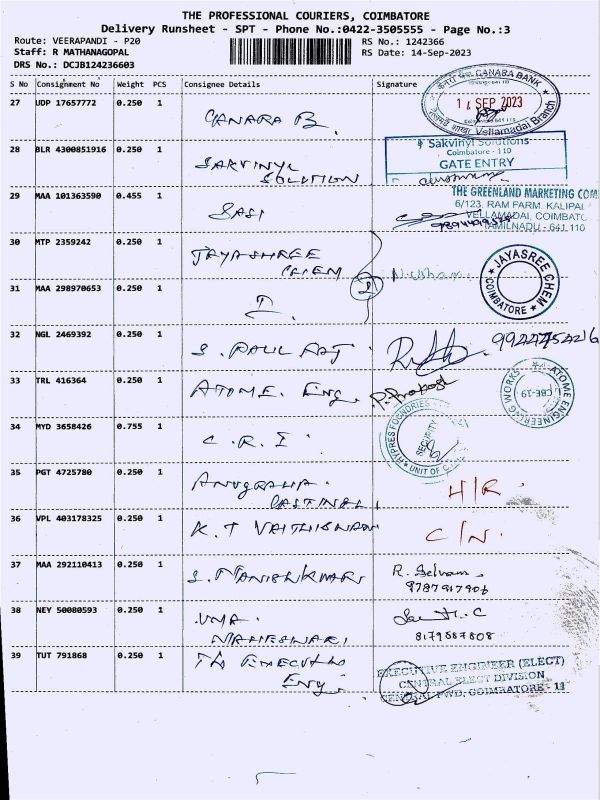 THE PROFESSIONAL COURIERS, COIMBATORE
Delivery Runsheet - SPT - Phone No.:0422-3505555 - Page No.:3
Route: VEERAPANDI - P20
RS No.: 1242366
Staff: R MATHANAGOPAL
RS Date: 14-Sep-2023
DRS No.: DCJB124236603
S No Consignment No Weight PCS Consignee Details Signature
27 UDP 17657772 0.250 1 CANARA B.
CANARA BANK
14 SEP 2023
Vellamadai Branch
28 BLR 4300851916 0.250 1 SAKVINYL
SOLUTION
Sakvinyl Solutions
Coimbatore - 110
GATE ENTRY
29 MAA 101363590 0.455 1 SASI
THE GREENLAND MARKETING COM
6/123, RAM FARM, KALIPAL
VELLAMADAI, COIMBATO
TAMILNADU - 641 110
30 MTP 2359242 0.250 1 JAYASHREE
CHEM
JAYASREE CHEM
COIMBATORE
31 MAA 298970653 0.250 1
32 NGL 2469392 0.250 1 S. PAUL RAJ
33 TRL 416364 0.250 1 ATOME. Eng
P. Prakash
ATOME ENGINEERING WORKS
CBE-19
34 MYD 3658426 0.755 1 C.R.I
HYPRES FOUNDRIES
SECURITY
UNIT OF C
35 PGT 4725780 0.250 1 ANUGRAHA
H/R.
36 VPL 403178325 0.250 1 K.T VAITHISWARAN
C/N.
37 MAA 292110413 0.250 1 S. MANISHKUMAR
R. Selvam
9787917906
38 NEY 50080593 0.250 1 UMA
MAHESWARI
8179687808
39 TUT 791868 0.250 1 Th EXECUTIVE
Eng
EXECUTIVE ENGINEER (ELECT)
CENTRAL ELECT DIVISION
CENTRAL PWD, COIMBATORE - 18